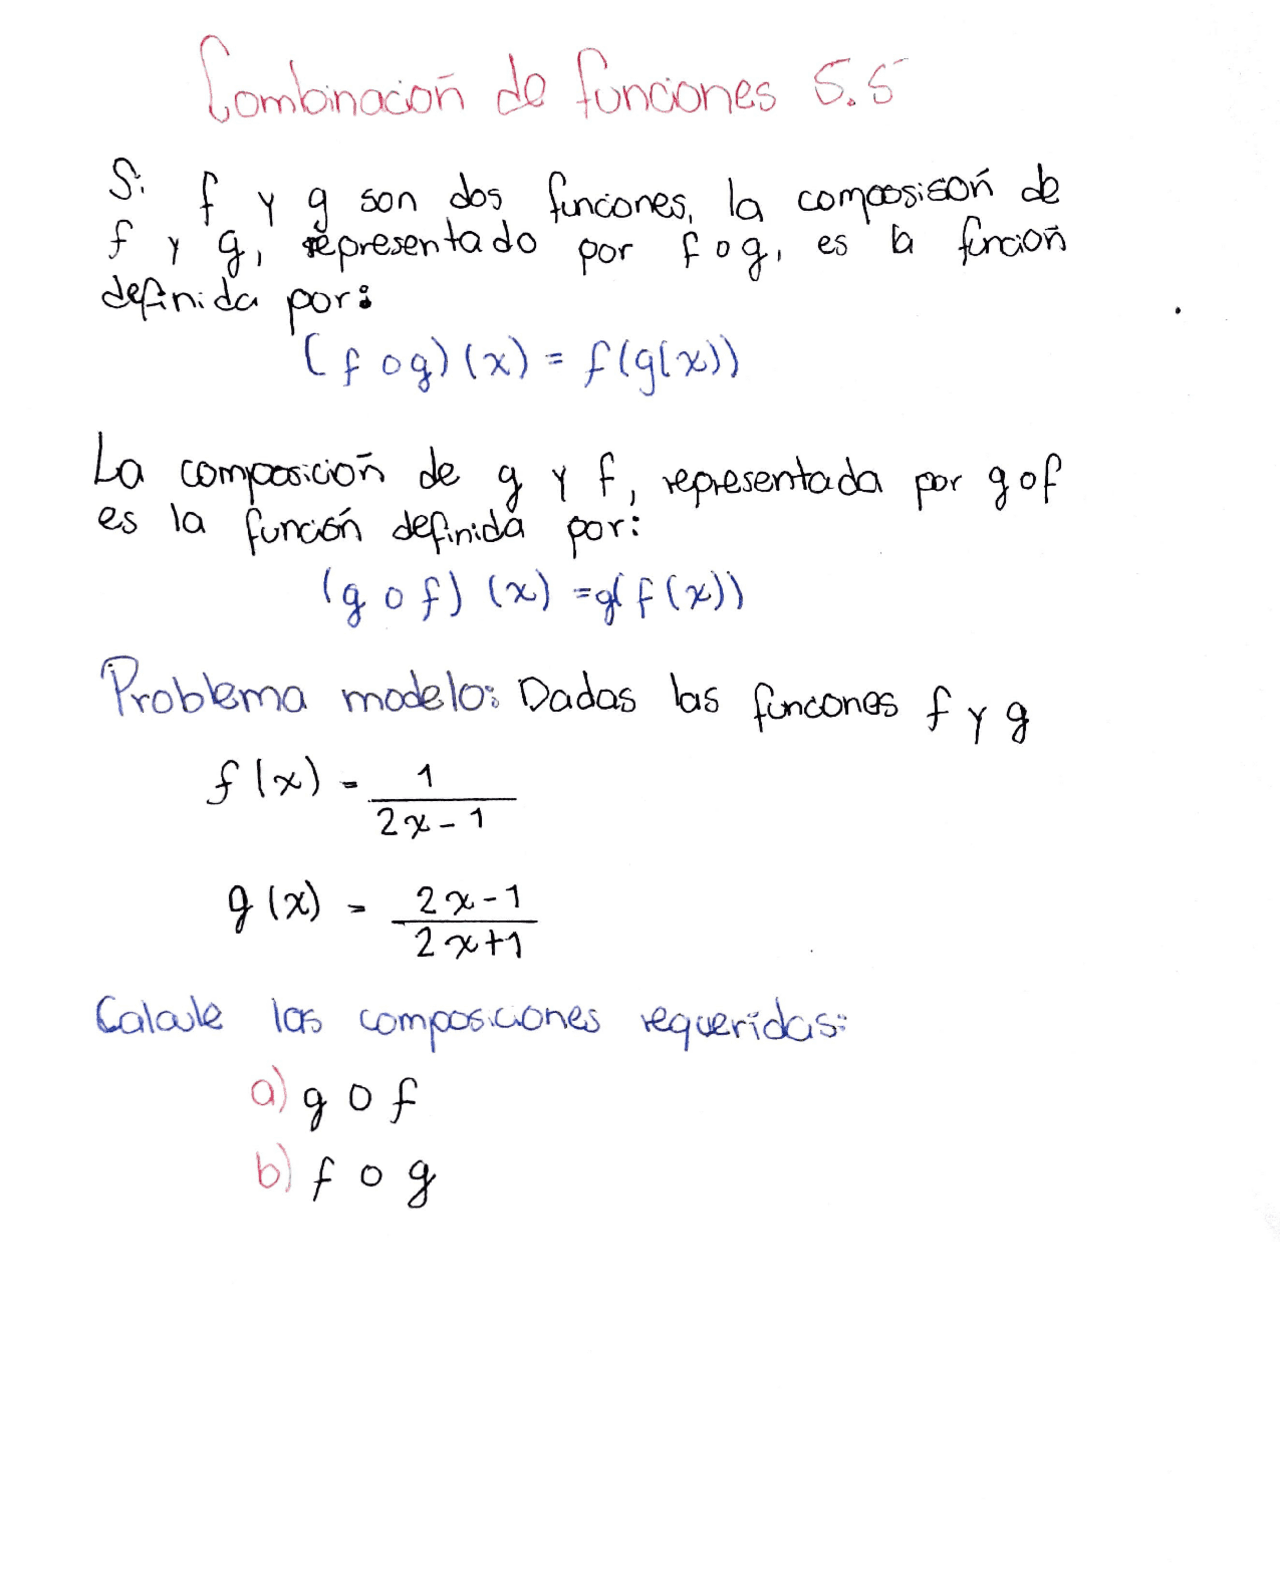 Combinación de funciones 5.5
Si f y g son dos funciones, la composisón de
f y g, representado por f o g, es la función
definida por:
(f o g)(x) = f(g(x))
La composición de g y f, representada por g o f
es la función definida por:
(g o f) (x) = g(f(x))
Problema modelo: Dadas las funcones f y g
f(x) = 1
2x - 1
g(x) = 2x - 1
2x + 1
Calcule las composiciones requeridas:
a) g o f
b) f o g